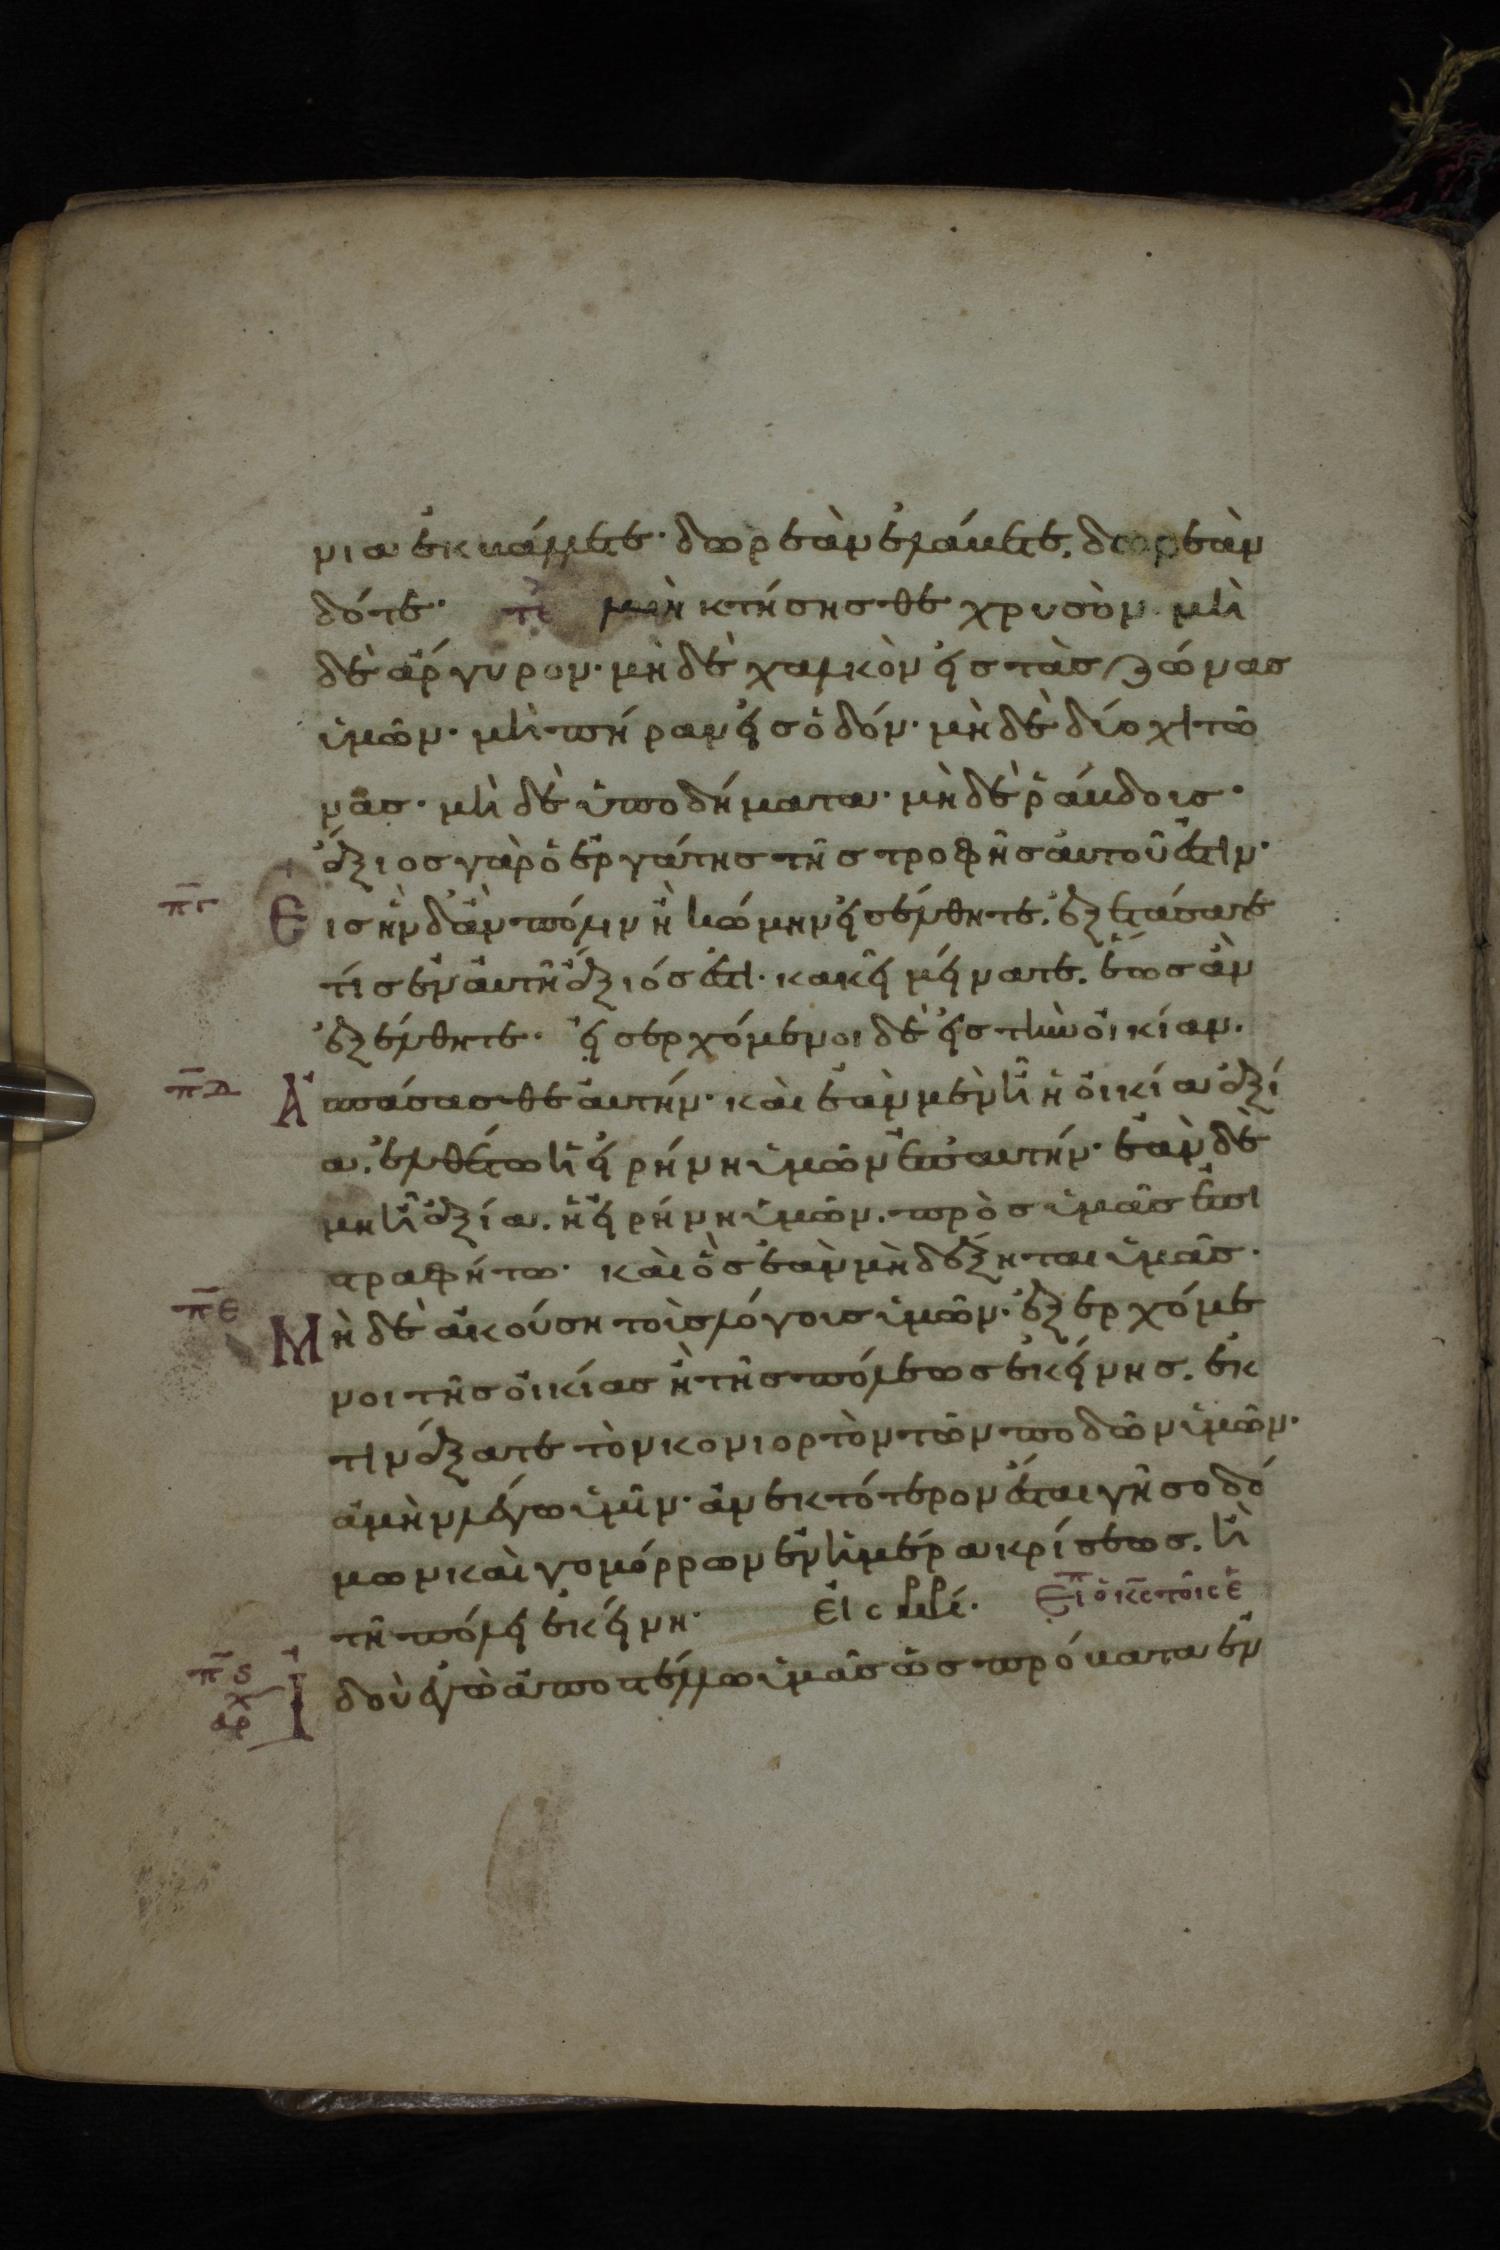 νια ἐκβάλλετε· δωρεὰν ἐλάβετε. δωρεὰν
δότε· τὲ μὴ κτήσησθε χρυσὸν μὴ
δὲ ἄργυρον· μὴ δὲ χαλκὸν εἰς τὰς ζώνας
ὑμῶν· μὴ πήραν εἰς ὁδόν· μὴ δὲ δύο χιτῶ
νας· μὴ δὲ ὑποδήματα· μὴ δὲ ῥάβδοις·
ἄξιος γὰρ ὁ ἐργάτης τῆς τροφῆς αὐτοῦ ἐστιν·
π̅γ Εἰς ἣν δ' ἂν πόλιν ἢ κώμην εἰσέλθητε. ἐξετάσατε
τίς ἐν αὐτῇ ἄξιός ἐστι· κακεῖ μείνατε. ἕως ἂν
ἐξέλθητε· εἰσερχόμενοι δὲ εἰς τὴν οἰκίαν.
π̅δ Ἀσπάσασθε αὐτήν· καὶ ἐὰν μὲν ἦ ἡ οἰκία ἀξί
α. ἐλθέτω ἡ εἰρήνη ὑμῶν ἐπ' αυτήν· ἐὰν δὲ
μη ἦ ἀξία. ἡ εἰρήνη ὑμῶν. πρὸς ὑμᾶς ἐπι
στραφήτω· καὶ ὃς ἐὰν μὴ δέξηται ὑμᾶς·
π̅ε Μὴ δὲ ἀκούση τοὺς λόγους ὑμῶν· ἐξερχόμε
νοι τῆς οἰκίας ἢ τῆς πόλεως ἐκείνης. ἐκ
τινάξατε τὸν κονιορτὸν τῶν ποδῶν ὑμῶν·
ἀμὴν λέγω ὑμῖν· ἀνεκτότερον ἔσται γῆ σοδό
μων καὶ γομόρρων ἐν ἡμέρα κρίσεως. ἢ
τῆ πόλει ἐκείνη·
π̅ς ἀρχ Ἰδοὺ ἐγὼ ἀποστέλλω ὑμᾶς ὡς πρόβατα ἐν